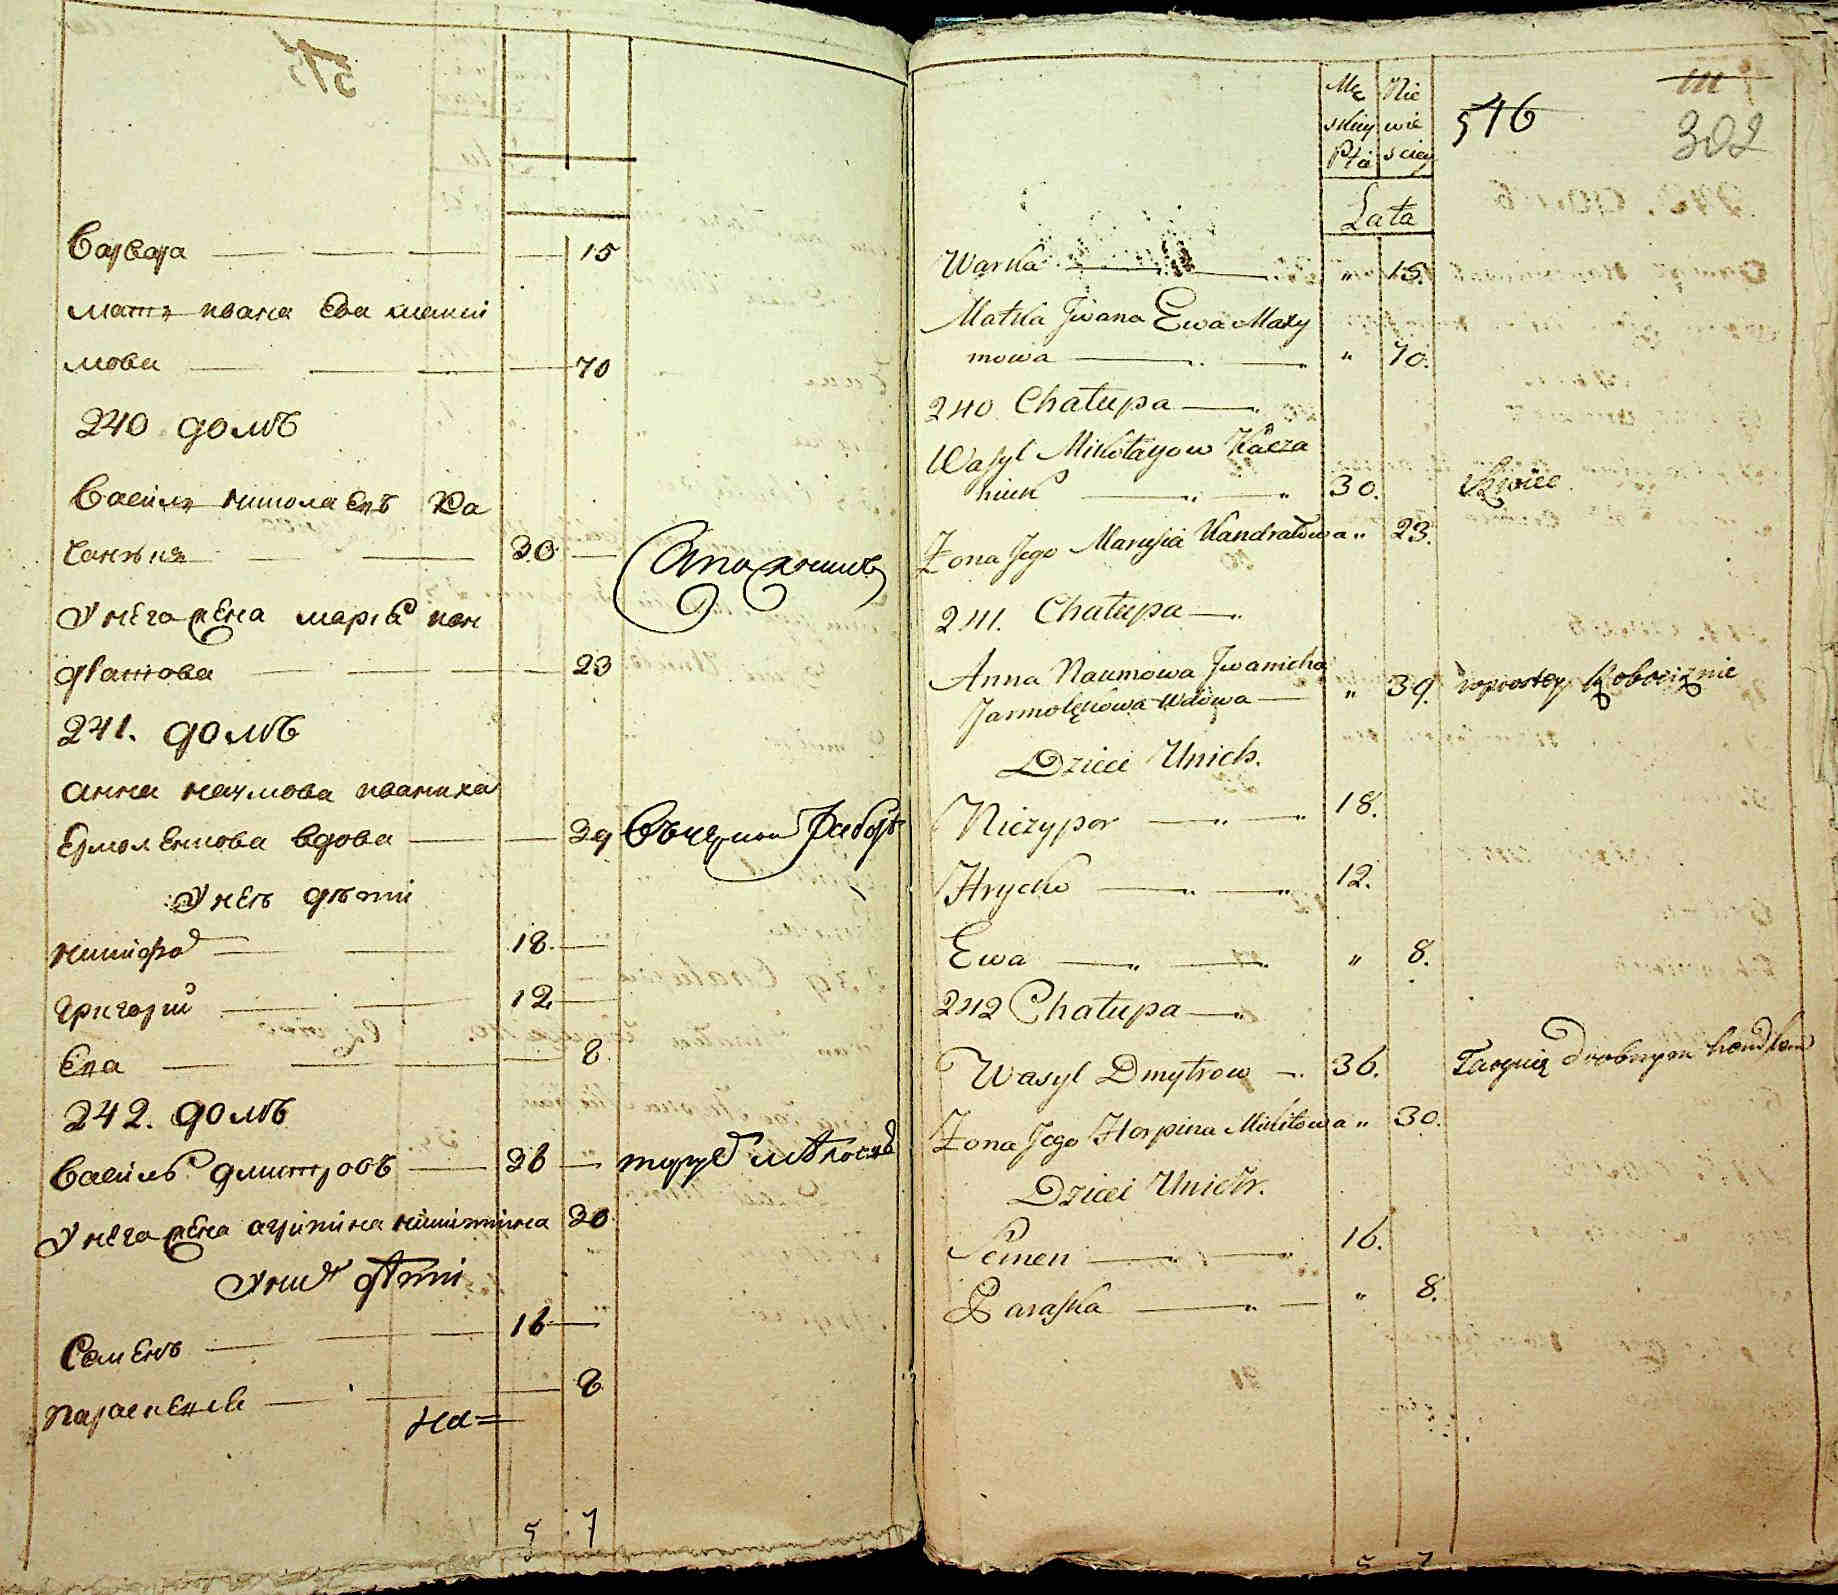 575
Варвара — — — — 15
мать ивана Ева макси
мова — — — 70
240 домъ
Василь николаевъ Ка
чанъня — — 30 — Сапожникъ
У него жена мария кон
дратова — — — 23
241. домъ
анна наумова иваниха
Ермоленкова вдова — — 39 Въчерной работѣ
У неъ дѣти
никифор — — 18. —
григорий — — 12 —
Ева — — — — 8.
242. домъ
Василь дмитровъ — 36 —
У него жена агрипина никитина 30
У них дѣти
Семенъ — — — 16 —
параскевия — — — 8
На=
5 7
Mę Nie
skiey wie
Płci sciey
Lata
546
111
302
Warka — — " 15.
Matka Jwana Ewa Maxy
mowa — — " 70.
240 Chałupa —
Wasyl Mikołayow Kacza
niuk — — 30. Szwiec
Żona Jego Marysia Kandratowa " 23.
241. Chałupa —
Anna Naumowa Jwanicha
Jarmolękowa Wdowa — " 39. wprostey Robociznie
Dzieci Unich.
Niczypor — — 18.
Hrycko — — 12.
Ewa — — " 8.
242 Chałupa —
Wasyl Dmytrow — 36. Targuią drobnym handlem
Żona Jego Horpina Mikitowa " 30.
Dzieci Unich.
Semen — — 16.
Paraska — — " 8.
5 7